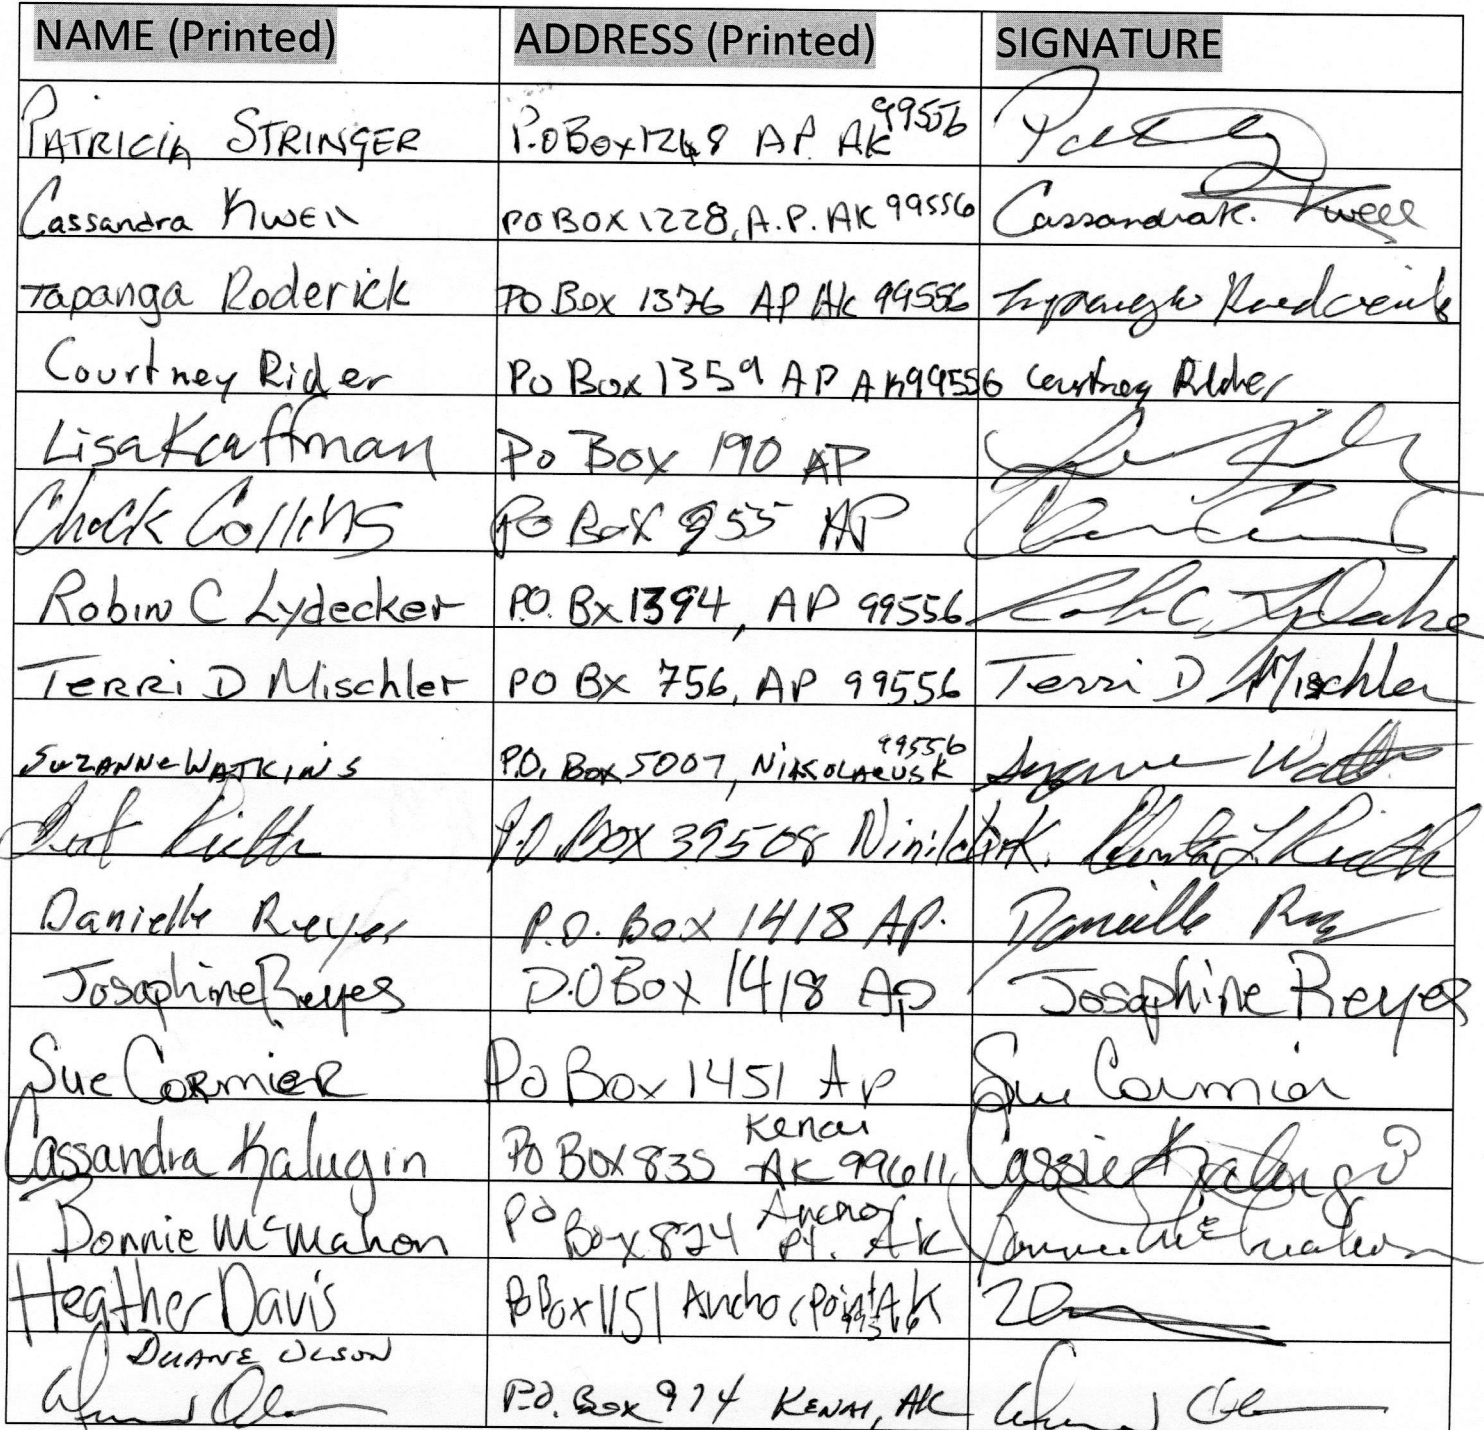 NAME (Printed) ADDRESS (Printed) SIGNATURE
PATRICIA STRINGER P.O Box 1248 AP. AK 99556
Cassandra Kweil PO BOX 1228, A.P. AK 99556 Cassandra K. Kweil
Tapanga Roderick PO Box 1376 AP AK 99556 Roderick
Courtney Rider PO Box 1359 AP AK 99556 Courtney Rider
Lisa Kraffman PO Box 190 AP
Chuck Collins PO Box 955 AP
Robin C Lydecker P.O. Bx 1394, AP 99556
TERRi D Mischler PO BX 756, AP 99556 Terri D Mischler
SUZANNE WATKINS P.O. Box 5007, 99556 Suzanne
P.O Box 39508 Ninilchik.
Danielle Reyes P.O. Box 1418 AP. Danielle
Josaphine Reyes P.O Box 1418 AP Josaphine Reyes
Sue CORMIER PO Box 1451 AP Sue Cormier
Cassandra Kalugin PO BOX 835 Kenai AK 99611 Cassie Kalugin
Bonnie McMahon PO Box 824 Anchor Pt. AK Bonnie McMahon
Heather Davis PO Box 1151 Anchor Point AK
DUANE OLSON P.O. Box 974 KENAI, AK